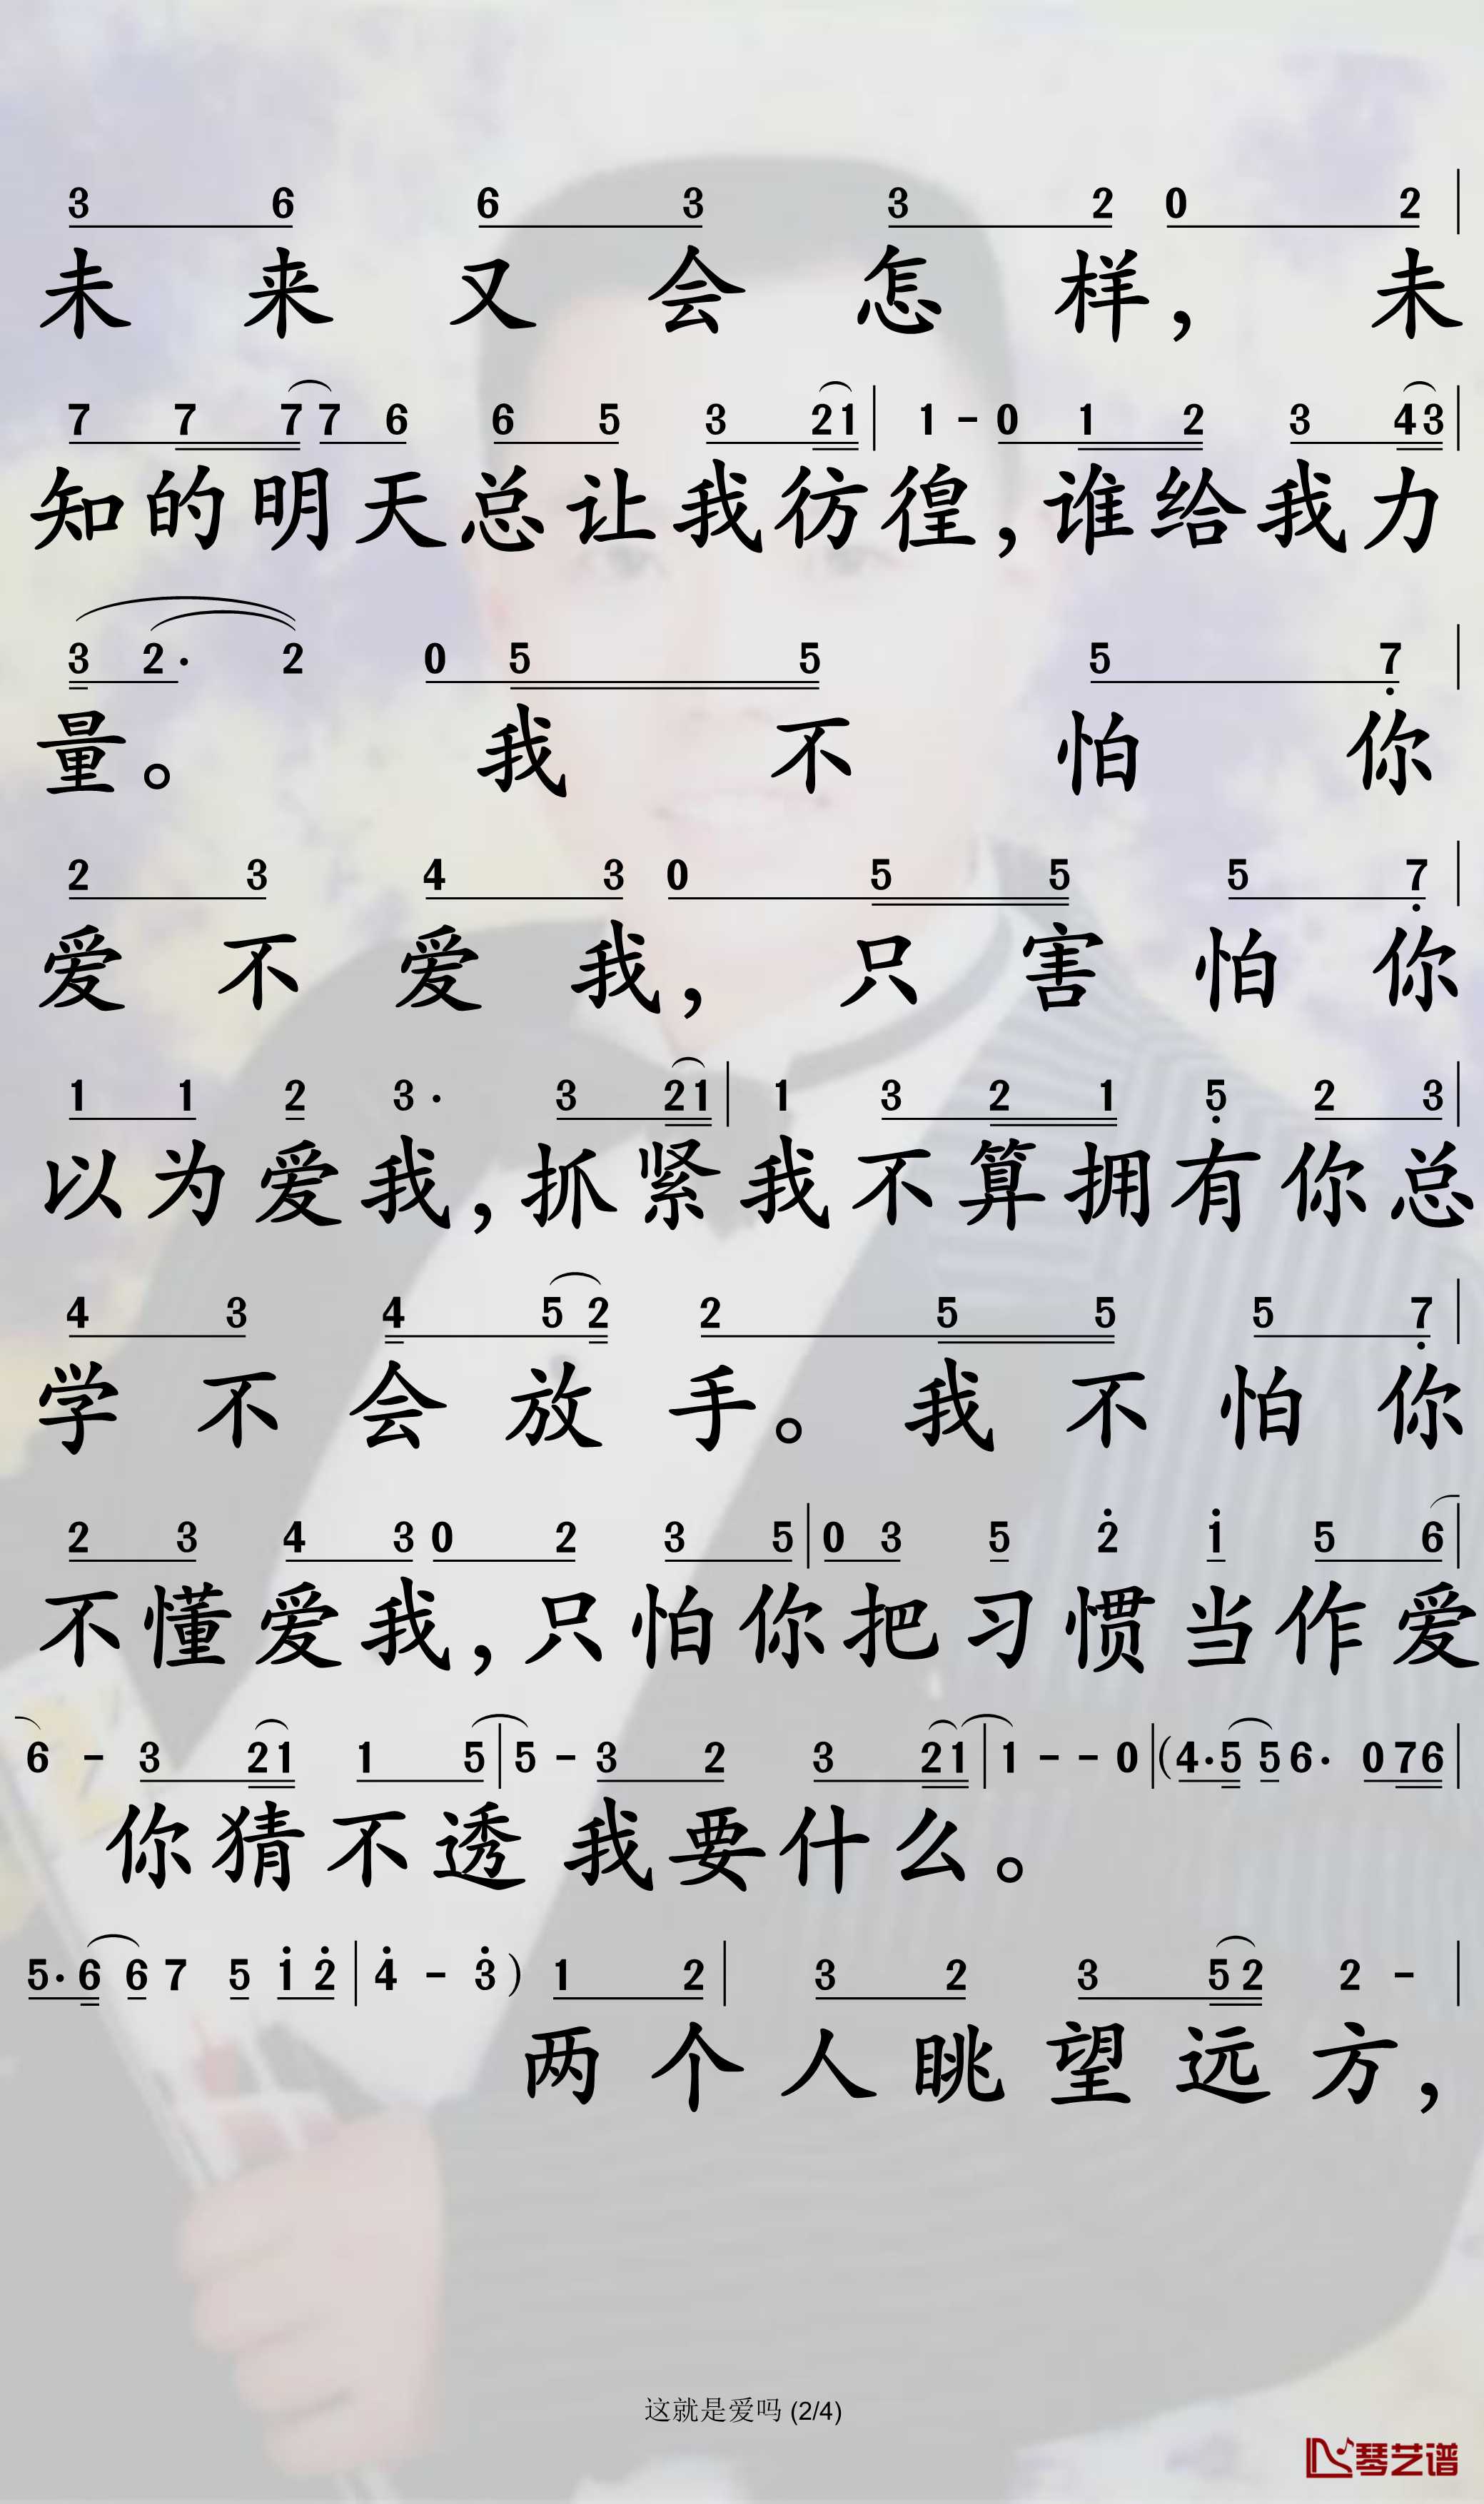 3 6 6 3 3 2 0 2 |
未来又会怎样，未
7 7 7 7 6 6 5 3 2 1 | 1 - 0 1 2 3 4 3 |
知的明天总让我彷徨，谁给我力
3 2· 2 0 5 5 5 7̣ |
量。我不怕你
2 3 4 3 0 5 5 5 7̣ |
爱不爱我，只害怕你
1 1 2 3· 3 2 1 | 1 3 2 1 5̣ 2 3 |
以为爱我，抓紧我不算拥有你总
4 3 4 5 2 2 5 5 5 7̣ |
学不会放手。我不怕你
2 3 4 3 0 2 3 5 | 0 3 5 2̇ 1̇ 5 6 |
不懂爱我，只怕你把习惯当作爱
6 - 3 2 1 1 5 | 5 - 3 2 3 2 1 | 1 - - 0 | (4· 5 5 6· 0 7 6 |
你猜不透我要什么。
5· 6 6 7 5 1̇ 2̇ | 4̇ - 3̇ ) 1 2 | 3 2 3 5 2 2 - |
两个人眺望远方，
这就是爱吗 (2/4)
琴艺谱